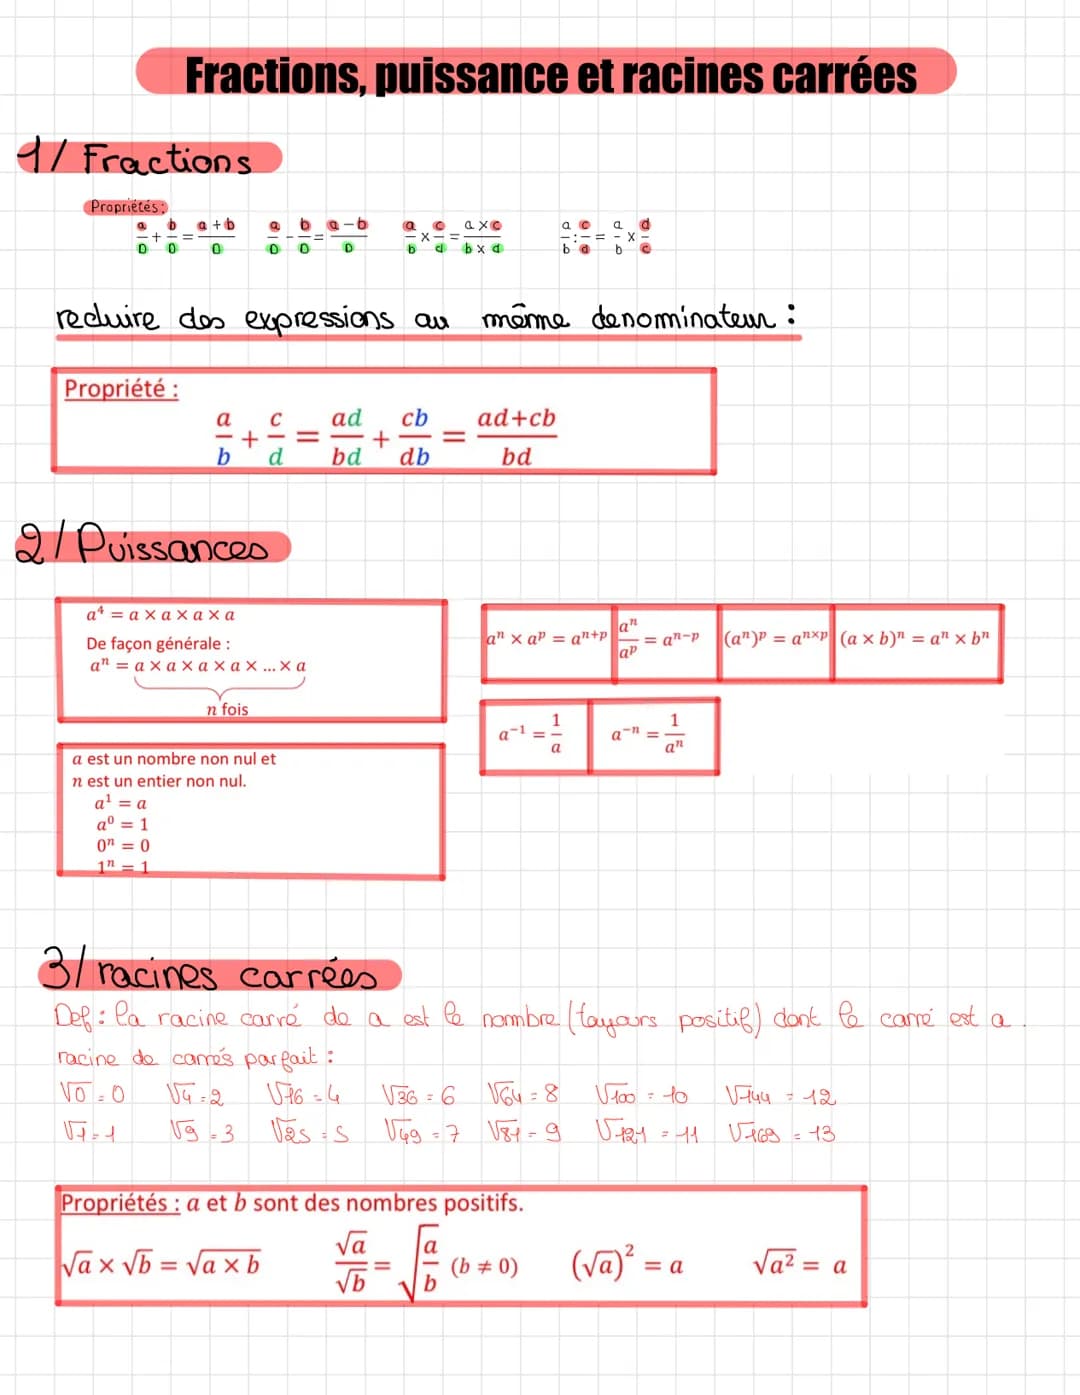 Fractions, puissance et racines carrées
1/ Fractions
Propriétés :
a/D + b/D = a+b/D   a/D - b/D = a-b/D   a/b × c/d = a×c/b×d   a/b : c/d = a/b × d/c
reduire des expressions au même denominateur :
Propriété :
a/b + c/d = ad/bd + cb/db = ad+cb/bd
2/ Puissances
a⁴ = a × a × a × a
De façon générale :
aⁿ = a × a × a × a × ... × a
n fois
aⁿ × aᵖ = aⁿ⁺ᵖ   aⁿ/aᵖ = aⁿ⁻ᵖ   (aⁿ)ᵖ = aⁿˣᵖ   (a × b)ⁿ = aⁿ × bⁿ
a⁻¹ = 1/a   a⁻ⁿ = 1/aⁿ
a est un nombre non nul et
n est un entier non nul.
a¹ = a
a⁰ = 1
0ⁿ = 0
1ⁿ = 1
3/ racines carrées
Def : la racine carré de a est le nombre (toujours positif) dont le carré est a.
racine de carrés parfait :
√0 = 0   √4 = 2   √16 = 4   √36 = 6   √64 = 8   √100 = 10   √144 = 12
√1 = 1   √9 = 3   √25 = 5   √49 = 7   √81 = 9   √121 = 11   √169 = 13
Propriétés : a et b sont des nombres positifs.
√a × √b = √a × b   √a/√b = √a/b (b ≠ 0)   (√a)² = a   √a² = a